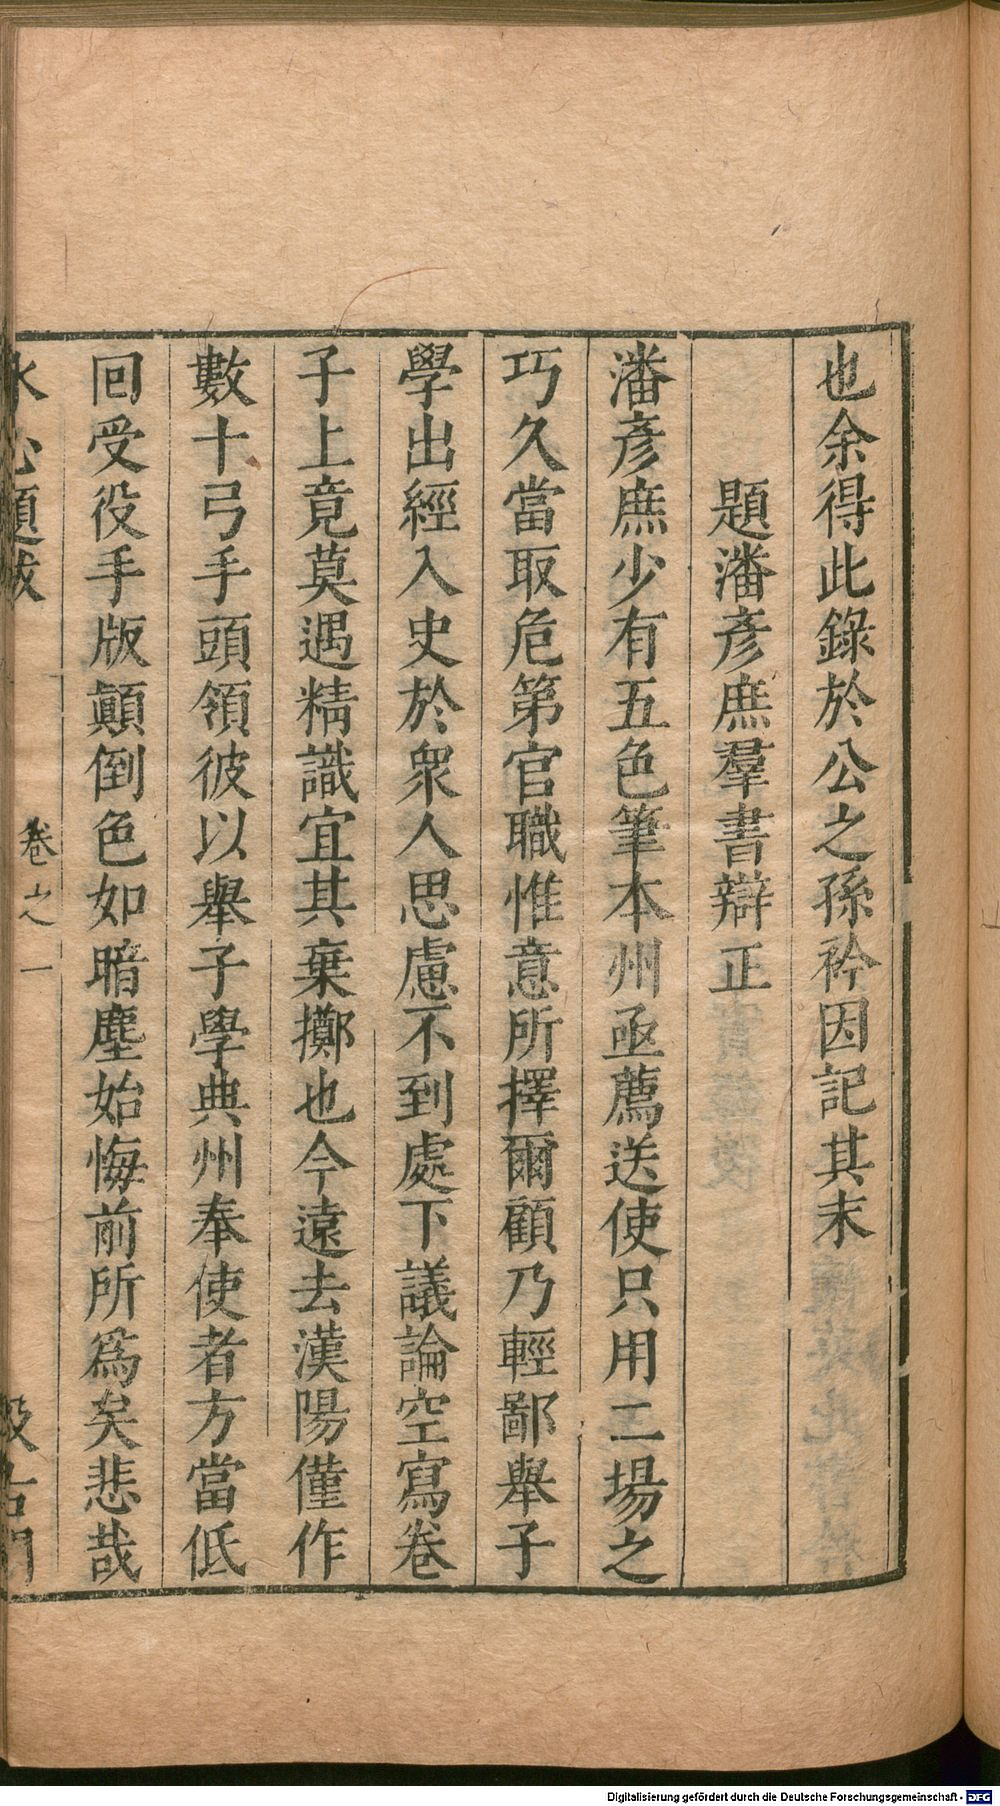 也余得此錄於公之孫衿因記其末
題潘彥庶羣書辯正
潘彥庶少有五色筆本州亟薦送使只用二場之
巧久當取危第官職惟意所擇爾顧乃輕鄙舉子
學出經入史於衆人思慮不到處下議論空寫卷
子上竟莫遇精識宜其棄擲也今遠去漢陽僅作
數十弓手頭領彼以舉子學典州奉使者方當低
回受役手版顛倒色如暗塵始悔前所爲矣悲哉
水心題跋
卷之一
汲古閣
Digitalisierung gefördert durch die Deutsche Forschungsgemeinschaft - DFG